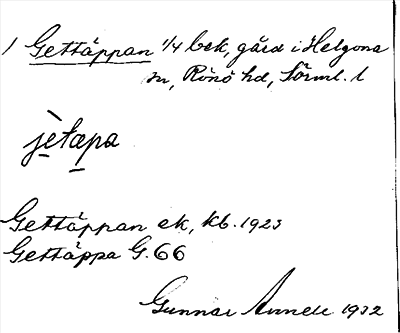 1 Gettäppan 1/4 bek, gård i Helgona
sn, Rönö hd, Sörml. l
jètæpa
Gettäppan ek, kb. 1923
Gettäppa G. 66
Gunnar Annell 1932